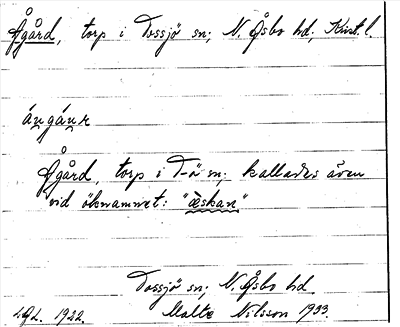 Ågård, torp i Tossjö sn; N. Åsbo hd, Krist. l.
ángánr
Ågård, torp i T-ö sn; kallades även
vid öknamnet: "äskan"
Tossjö sn; N. Åsbo hd
1922. Malte Nilsson 1933.